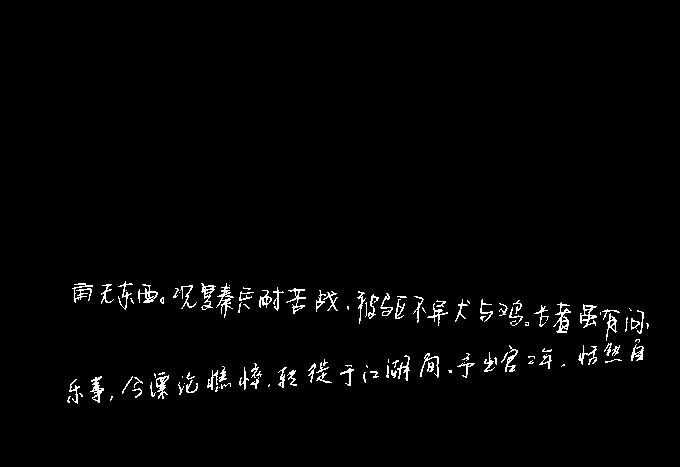 亩无东西。况复秦兵耐苦战，被驱不异犬与鸡。长者虽有问，
乐事，今漂沦憔悴，转徙于江湖间。予出官二年，恬然自